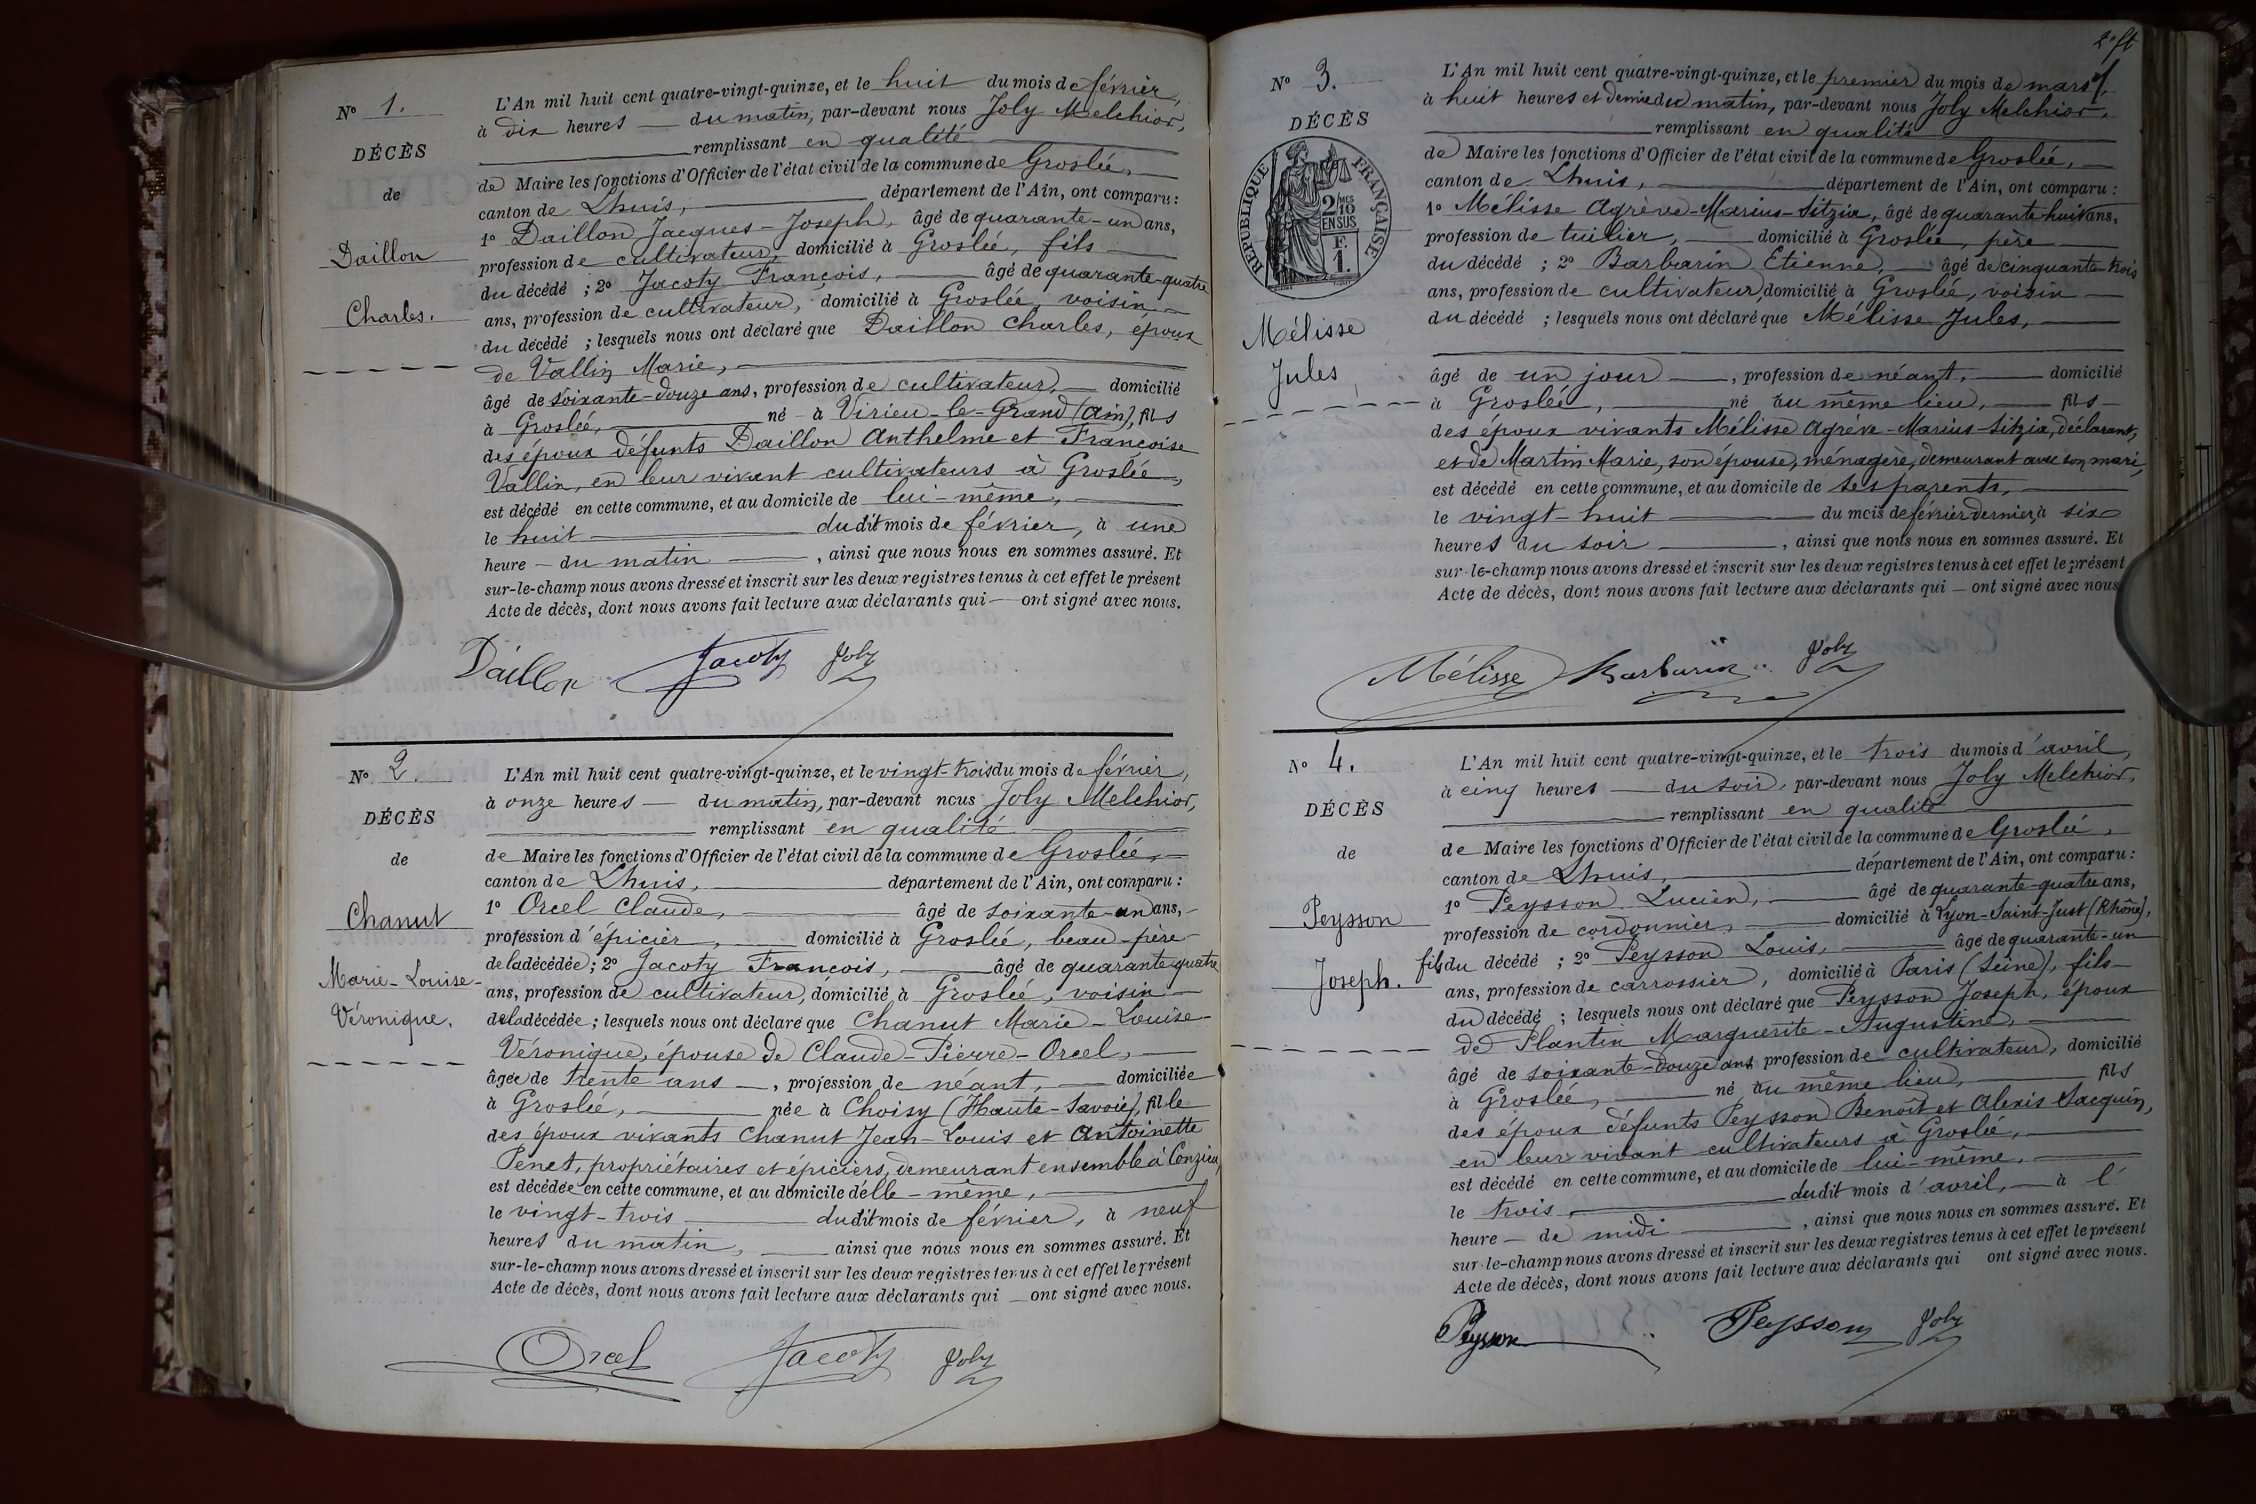 N° 1.
DÉCÈS
de
Daillon
Charles.
L'An mil huit cent quatre-vingt-quinze, et le huit du mois de février,
à dix heures du matin, par-devant nous Joly Melchior,
remplissant en qualité
de Maire les fonctions d'Officier de l'état civil de la commune de Groslée,
canton de Lhuis, département de l'Ain, ont comparu :
1° Daillon Jacques-Joseph, âgé de quarante-un ans,
profession de cultivateur, domicilié à Groslée, fils
du décédé ; 2° Jacoty François, âgé de quarante-quatre
ans, profession de cultivateur, domicilié à Groslée, voisin,
du décédé ; lesquels nous ont déclaré que Daillon Charles, époux
de Vallin Marie,
âgé de soixante-douze ans, profession de cultivateur, domicilié
à Groslée, né à Virieu-le-Grand (Ain), fils
des époux défunts Daillon Anthelme et Françoise
Vallin, en leur vivant cultivateurs à Groslée,
est décédé en cette commune, et au domicile de lui-même,
le huit dudit mois de février, à une
heure du matin, ainsi que nous nous en sommes assuré. Et
sur-le-champ nous avons dressé et inscrit sur les deux registres tenus à cet effet le présent
Acte de décès, dont nous avons fait lecture aux déclarants qui ont signé avec nous.
Daillon Jacoty Joly
N° 2.
DÉCÈS
de
Chanut
Marie-Louise-
Véronique.
L'An mil huit cent quatre-vingt-quinze, et le vingt-trois du mois de février,
à onze heures du matin, par-devant nous Joly Melchior,
remplissant en qualité
de Maire les fonctions d'Officier de l'état civil de la commune de Groslée,
canton de Lhuis, département de l'Ain, ont comparu :
1° Orcel Claude, âgé de soixante-un ans,
profession d'épicier, domicilié à Groslée, beau-père
de la décédée ; 2° Jacoty François, âgé de quarante-quatre
ans, profession de cultivateur, domicilié à Groslée, voisin
de la décédée ; lesquels nous ont déclaré que Chanut Marie-Louise-
Véronique, épouse de Claude-Pierre-Orcel,
âgée de trente ans, profession de néant, domiciliée
à Groslée, née à Choisy (Haute-Savoie), fille
des époux vivants Chanut Jean-Louis et Antoinette
Penet, propriétaires et épiciers, demeurant ensemble à Conzieu,
est décédée en cette commune, et au domicile d'elle-même,
le vingt-trois dudit mois de février, à neuf
heures du matin, ainsi que nous nous en sommes assuré. Et
sur-le-champ nous avons dressé et inscrit sur les deux registres tenus à cet effet le présent
Acte de décès, dont nous avons fait lecture aux déclarants qui ont signé avec nous.
Orcel Jacoty Joly
N° 3.
DÉCÈS
RÉPUBLIQUE FRANÇAISE
2 MES
10
EN SUS
F.
1.
Mélisse
Jules
L'An mil huit cent quatre-vingt-quinze, et le premier du mois de mars,
à huit heures et demie du matin, par-devant nous Joly Melchior,
remplissant en qualité
de Maire les fonctions d'Officier de l'état civil de la commune de Groslée,
canton de Lhuis, département de l'Ain, ont comparu :
1° Mélisse Agrève-Marius-Sitzia, âgé de quarante-huit ans,
profession de tuilier, domicilié à Groslée, père
du décédé ; 2° Barbarin Etienne, âgé de cinquante-trois
ans, profession de cultivateur, domicilié à Groslée, voisin
du décédé ; lesquels nous ont déclaré que Mélisse Jules,
âgé de un jour, profession de néant, domicilié
à Groslée, né au même lieu, fils
des époux vivants Mélisse Agrève-Marius-Sitzia, déclarant,
et de Martin Marie, son épouse, ménagère, demeurant avec son mari,
est décédé en cette commune, et au domicile de ses parents,
le vingt-huit du mois de février dernier, à six
heures du soir, ainsi que nous nous en sommes assuré. Et
sur-le-champ nous avons dressé et inscrit sur les deux registres tenus à cet effet le présent
Acte de décès, dont nous avons fait lecture aux déclarants qui ont signé avec nous
Mélisse Barbarin Joly
N° 4.
DÉCÈS
de
Peysson
Joseph.
L'An mil huit cent quatre-vingt-quinze, et le trois du mois d'avril,
à cinq heures du soir, par-devant nous Joly Melchior,
remplissant en qualité
de Maire les fonctions d'Officier de l'état civil de la commune de Groslée,
canton de Lhuis, département de l'Ain, ont comparu :
1° Peysson Lucien, âgé de quarante-quatre ans,
profession de cordonnier, domicilié à Lyon-Saint-Just (Rhône),
fils du décédé ; 2° Peysson Louis, âgé de quarante-un
ans, profession de carrossier, domicilié à Paris (Seine), fils
du décédé ; lesquels nous ont déclaré que Peysson Joseph, époux
de Plantin Marguerite-Augustine,
âgé de soixante-douze ans profession de cultivateur, domicilié
à Groslée, né au même lieu, fils
des époux défunts Peysson Benoît et Alexis Jacquin,
en leur vivant cultivateurs à Groslée,
est décédé en cette commune, et au domicile de lui-même,
le trois dudit mois d'avril, à l'
heure de midi, ainsi que nous nous en sommes assuré. Et
sur-le-champ nous avons dressé et inscrit sur les deux registres tenus à cet effet le présent
Acte de décès, dont nous avons fait lecture aux déclarants qui ont signé avec nous.
Peysson Peysson Joly